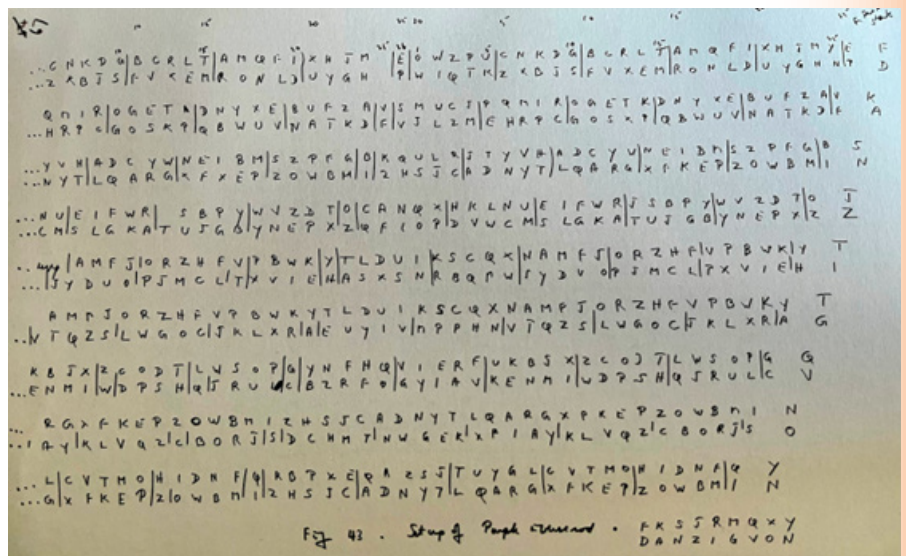 ...C N K D G|B C R L T|A M Q F I|X H J M |E|O W Z P J|C N K D G|B C R L T|A M Q F I|X H J M Y|E F
...Z X B J S|F V X E M|R O N L D|U Y G H P|W I Q T K|Z X B J S|F V X E M|R O N L D|U Y G H N|P D
Q M I R|O G E T K|D N Y X E|B U F Z A|V|S M W C J|P Q M I R|O G E T K|D N Y X E|B U F Z A|V K
...H R P C|G O S K P|Q B W U V|N A T K D|F|V J L Z M|E H R P C|G O S X P|Q B W U V|N A T K D|F A
...Y V H|A D C Y W|N E I B M|S Z P F G|O|K Q U L R|J T Y V H|A D C Y V|N E I D M|S Z P F G|B S
...N Y T|L Q A R G|X F X E P|Z O W B M|I|Z H S J C|A D N Y T|L Q A R G|X F K E P|Z O W B M|I N
...N U|E I F W R| S B P Y|W V Z D T|O|C A N Q X|H K L N U|E I F W R|J S B P Y|W V Z D T|O J
...C M|S L G K A|T U J G B|Y N E P X|Z|Q F I O P|D V W C M|S L G K A|T U J G B|Y N E P X|Z Z
|A M F J|O R Z H F V|P B W K|Y|T L D U I|K S C Q X|N A M F J|O R Z H F|V P B W K|Y T
...|J Y D U O|P J M C L|T X V I E|H|A S X S N|R B Q P W|J Y D V O|P J M C L|P X V I E|H I
A M F J O R Z H F V P B W K Y T L D U I K S C Q X N A M P J O R Z H F V P B V K Y T
...N T Q Z S|L W G O C|J K L X R|A|E U Y I V|M P P H N|V T Q Z S|L W G O C|J K L X R|A G
K B J X|Z C O D T|L W S O P|G|Y N F H Q|V I E R F|U K B S X|Z C O J T|L W S O P|G Q
...E N M I|W D P S H Q|J R U L C|B Z R F O|G Y I A V|K E N M I|W D P S H|Q J R U L|C V
... R G X F K E P Z O W B M I Z H S J C A D N Y T L Q A R G X P K E P Z O W B M I N
...I A Y|K L V Q Z|C|B O R J|S|D C H M T|N W G E R|X P I A Y|K L V Q Z|C B O R J|S O
...L|C V T M O|H I D N F|Q|R B P X E|Q A Z S J|T U Y G L|C V T M O|H I D N F|Q Y
...G|X F K E P|Z O W B M|I|Z H S J C|A D N Y T|L Q A R G|X F K E P|Z O W B M|I N
Fig 43. Set up of . F K S J R M Q X Y
D A N Z I G V O N